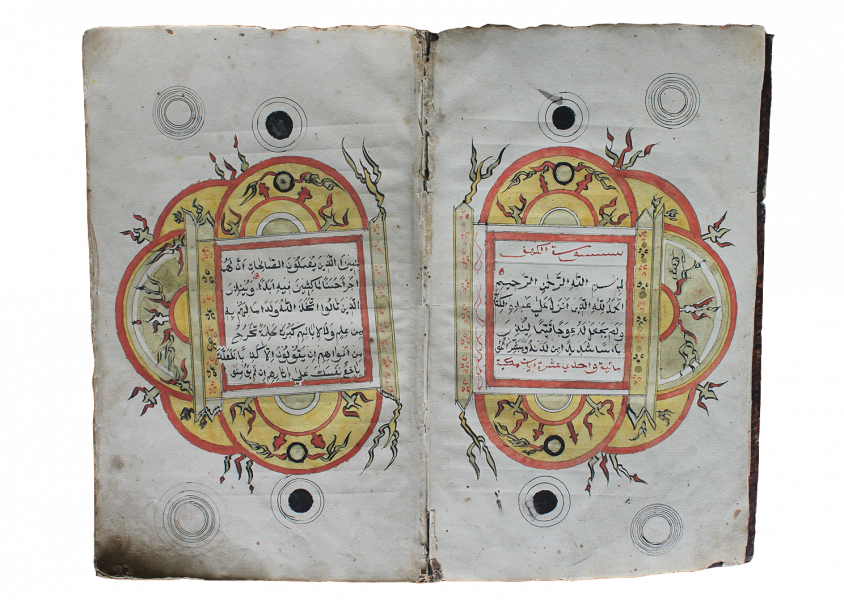 سورة الكهف
بسم الله الرحمن الرحيم
الحمد لله الذي انزل علي عبده الكت
ولم يجعل له عوجا قيما لينذر
باسا شديدا من لدنه ويبشر المؤ
مائة واحد عشرة ايات مكية
منين الذين يعملون الصالحات ان لهم
اجرا حسنا ماكثين فيه ابدا وينذر
الذين قالوا اتخذ الله ولدا ما لهم به
من علم ولا لابائهم كبرت كلمة تخرج
من افواههم ان يقولون الا كذبا فلعلك
باخع نفسك علي اثارهم ان لم يؤمنوا